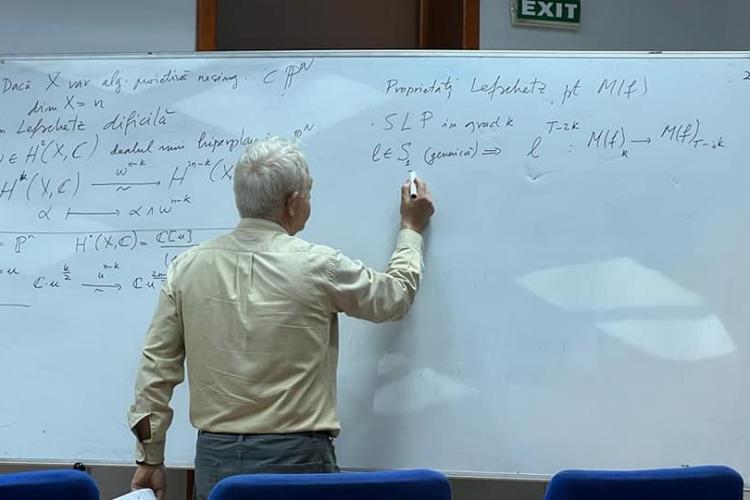 EXIT
Dacă X var alg. proiectivă nesing. ⊂ ℙᴺ
dim X = n
Lefschetz dificilă
∈ H²(X, ℂ) dualul unui hiperplan
Hᵏ(X, ℂ) ⟶ ωⁿ⁻ᵏ ~ H²ⁿ⁻ᵏ(X
α ⟼ α ∧ ωⁿ⁻ᵏ
= ℙⁿ H˙(X, ℂ) = ℂ[u]
ℂ·u^{k/2} ⟶ uⁿ⁻ᵏ ~ ℂu
Proprietăți Lefschetz pt M(f)
· SLP in grad k
ℓ ∈ S₁ (generică) ⇒ ℓ^{T-2k} : M(f)ₖ → M(f)_{T-k}
2